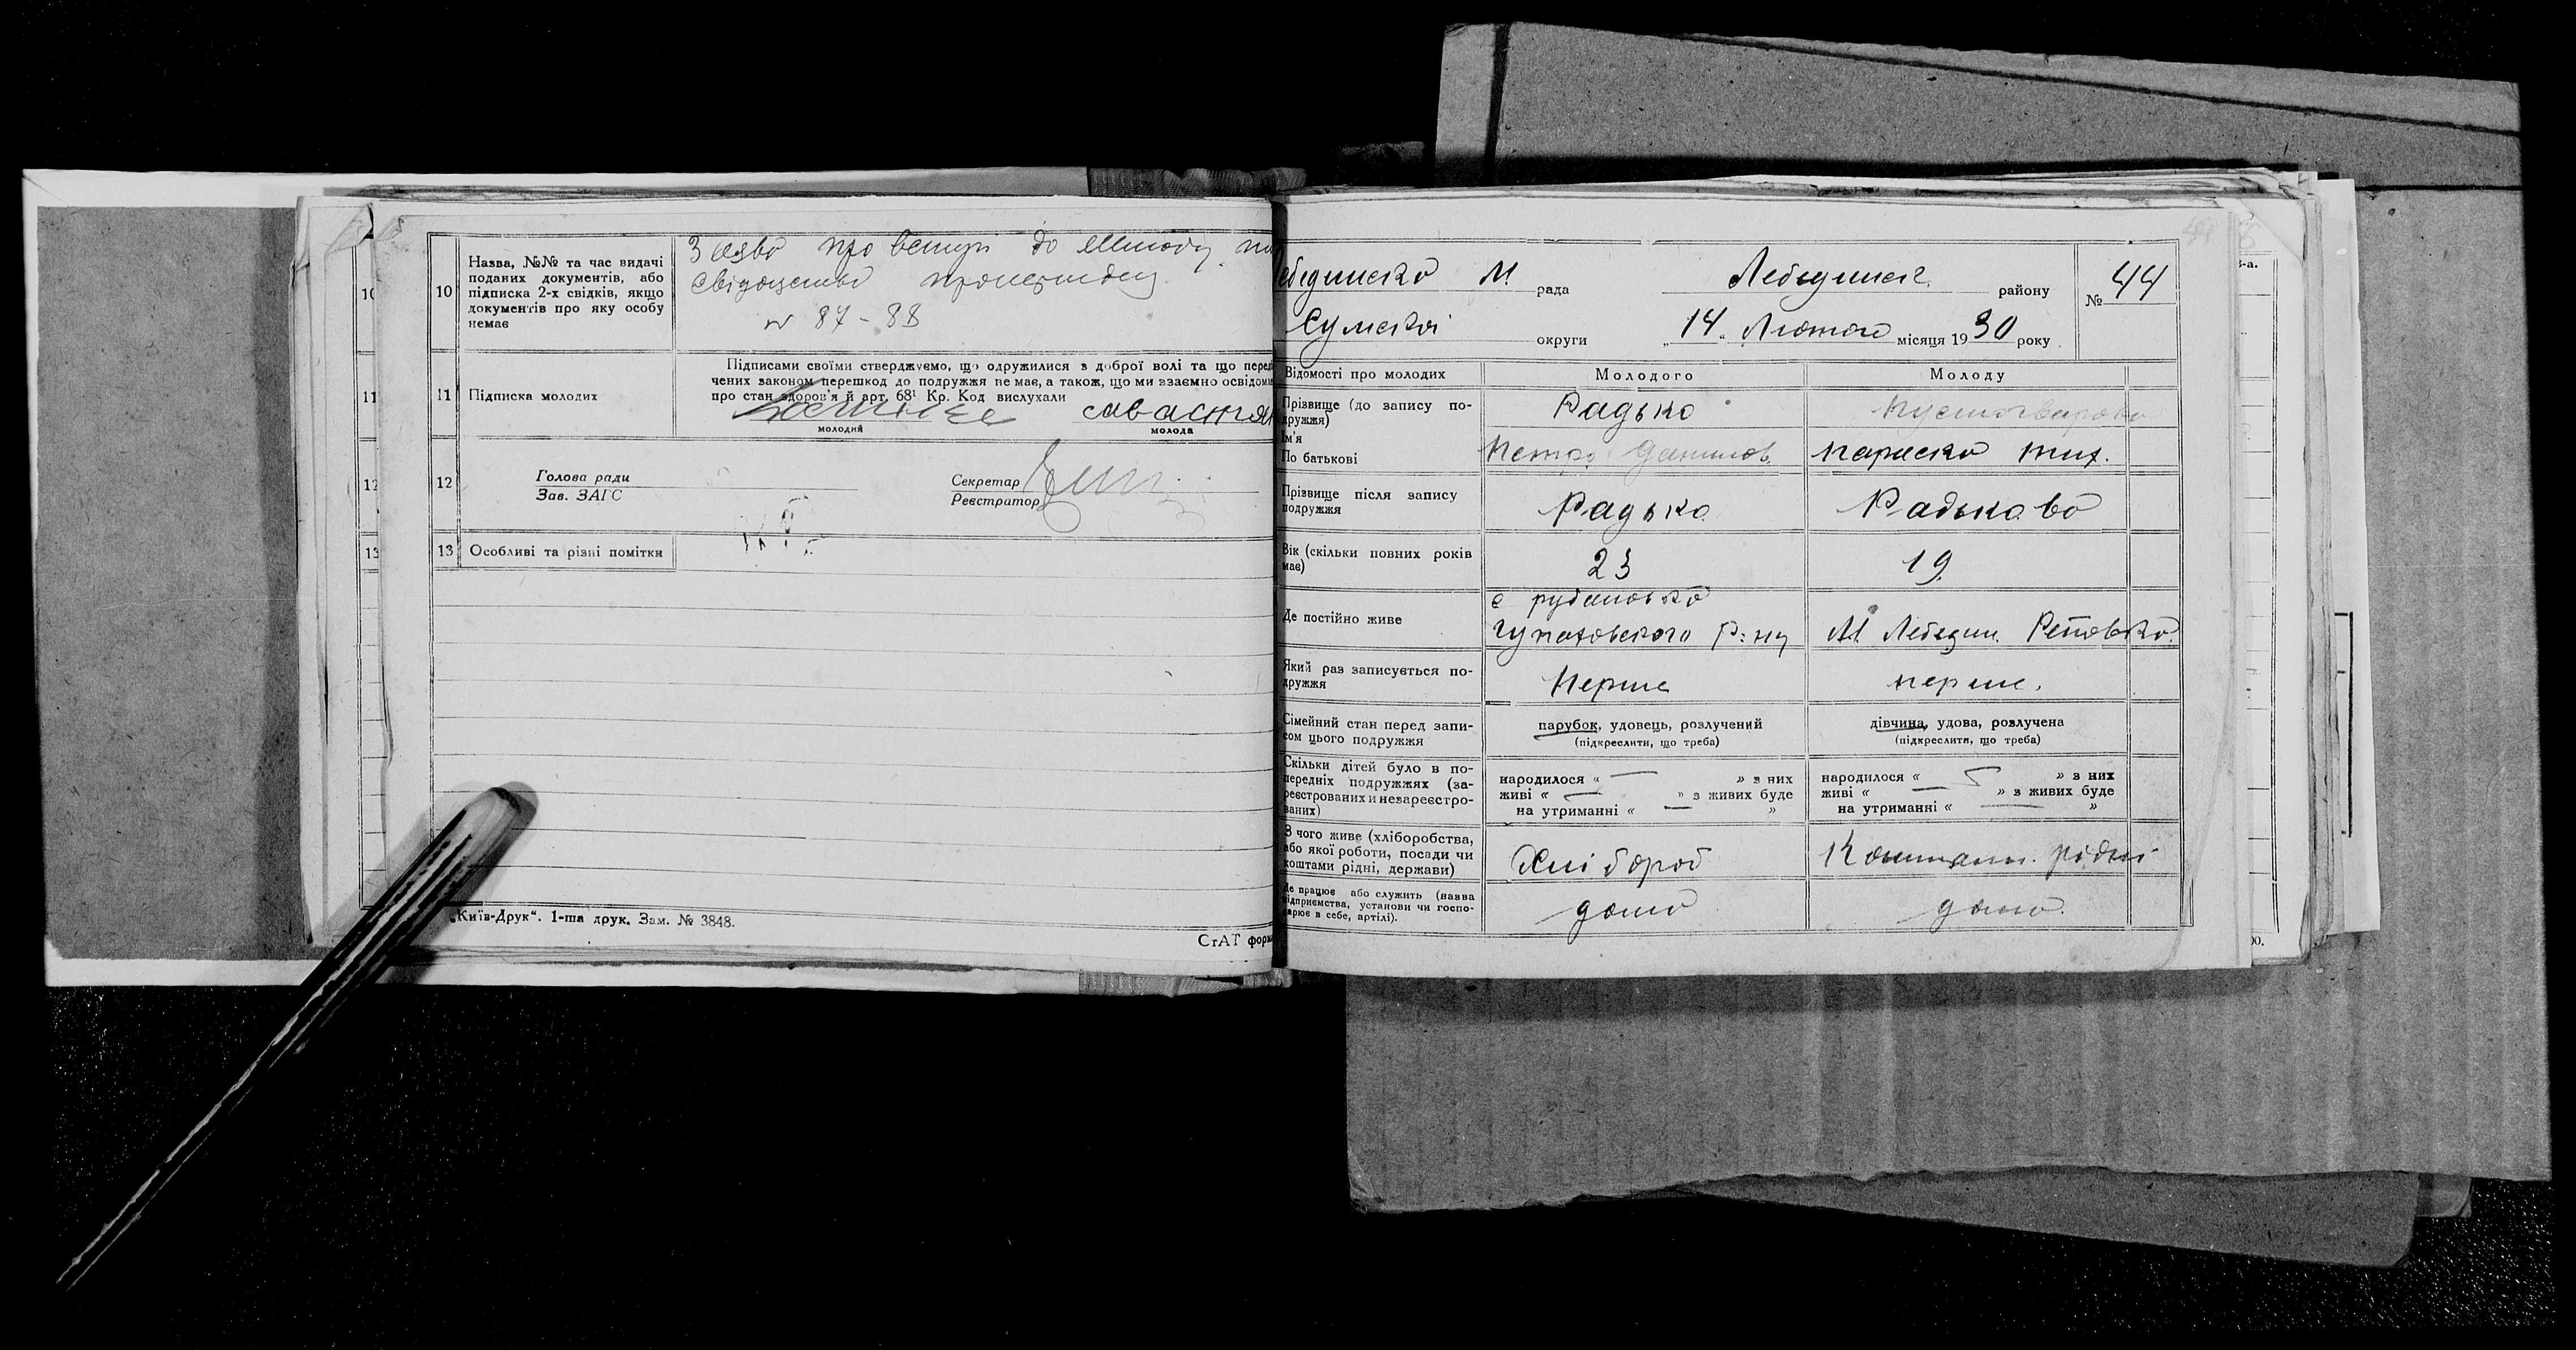 10
10
Назва, №№ та час видачі
поданих документів, або
підписка 2-х свідків, якщо
документів про яку особу
немає
Заява про вступ до
№ 87-88
11
11
Підписка молодих
Підписами своїми стверджуємо, що одружилися з доброї волі та що перед
чених законом перешкод до подружжя не має, а також, що ми взаємно освідомл
про стан здоров'я й арт. 68¹ Кр. Код вислухали
молодий
молода
12
12
Голова ради
Зав. ЗАГС
Секретар
Реєстратор
13
13
Особливі та різні помітки
„Київ-Друк“. 1-ша друк. Зам. № 3848.
СтАТ форм
М.
рада
Лебединськ.
району
№ 44
Сумської
округи
„14„ Лютого місяця 1930 року
Відомості про молодих
Молодого
Молоду
Прізвище (до запису по-
дружжя)
Радько
Ім'я
По батькові
Петро Данилов.
Параска Тих.
Прізвище після запису
подружжя
Радько
Радькова
Вік (скільки повних років
має)
23
19
Де постійно живе
с
Р-ну
М Лебедин.
Який раз записується по-
дружжя
Перше
перше.
Сімейний стан перед запи-
сом цього подружжя
парубок, удовець, розлучений
(підкреслити, що треба)
дівчина, удова, розлучена
(підкреслити, що треба)
Скільки дітей було в по-
передніх подружжях (за-
реєстрованих и незареєстро-
ваних)
народилося « — » з них
живі « — » з живих буде
на утриманні « — »
народилося « — » з них
живі « — » з живих буде
на утриманні « — »
З чого живе (хліборобства,
або якої роботи, посади чи
коштами рідні, держави)
Хлібороб
Коштами рідні
Де працює або служить (назва
підприємства, установи чи госпо-
дарює в себе, артілі).
дома
дома.